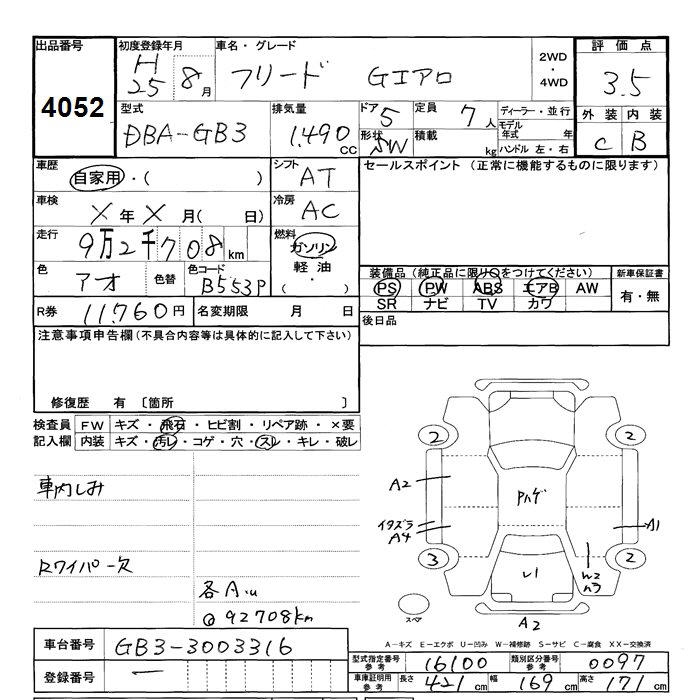 出品番号 初度登録年月 車名・グレード 2WD・4WD 評価点
4052 H25 8月 フリード Gエアロ 3.5
型式 排気量 ドア 5 定員 7人 ディーラー・並行 外装 内装
DBA-GB3 1.490 CC 形状 SW 積載 kg モデル年式 年 ハンドル 左・右 C B
車歴 自家用・( ) シフト AT セールスポイント (正常に機能するものに限ります)
車検 X年X月( 日) 冷房 AC
走行 9万2千708km 燃料 ガソリン 軽油 ( )
色 アオ 色替 色コード B553P
装備品(純正品に限り○をつけてください) 新車保証書
PS PW ABS エアB AW 有・無
SR ナビ TV カワ
R券 11.760円 名変期限 月 日 後日品
注意事項申告欄(不具合内容等は具体的に記入して下さい)
修復歴 有 〔箇所 〕
検査員記入欄 FW キズ・飛石・ヒビ割・リペア跡・×要
内装 キズ・汚レ・コゲ・穴・スレ・キレ・破レ
車内しみ
Rワイパー欠
各A.u
@92708km
2 2
A2
Pハゲ
イタズラ
A4
A1
3 2
U1
W2
スペア
A2
A-キズ E-エクボ U-凹み W-補修跡 S-サビ C-腐食 XX-交換済
車台番号 GB3-3003316
登録番号 一
型式指定番号 参考 16100 類別区分番号 参考 0097
車庫証明用 参考 長さ 421cm 幅 169cm 高さ 171cm